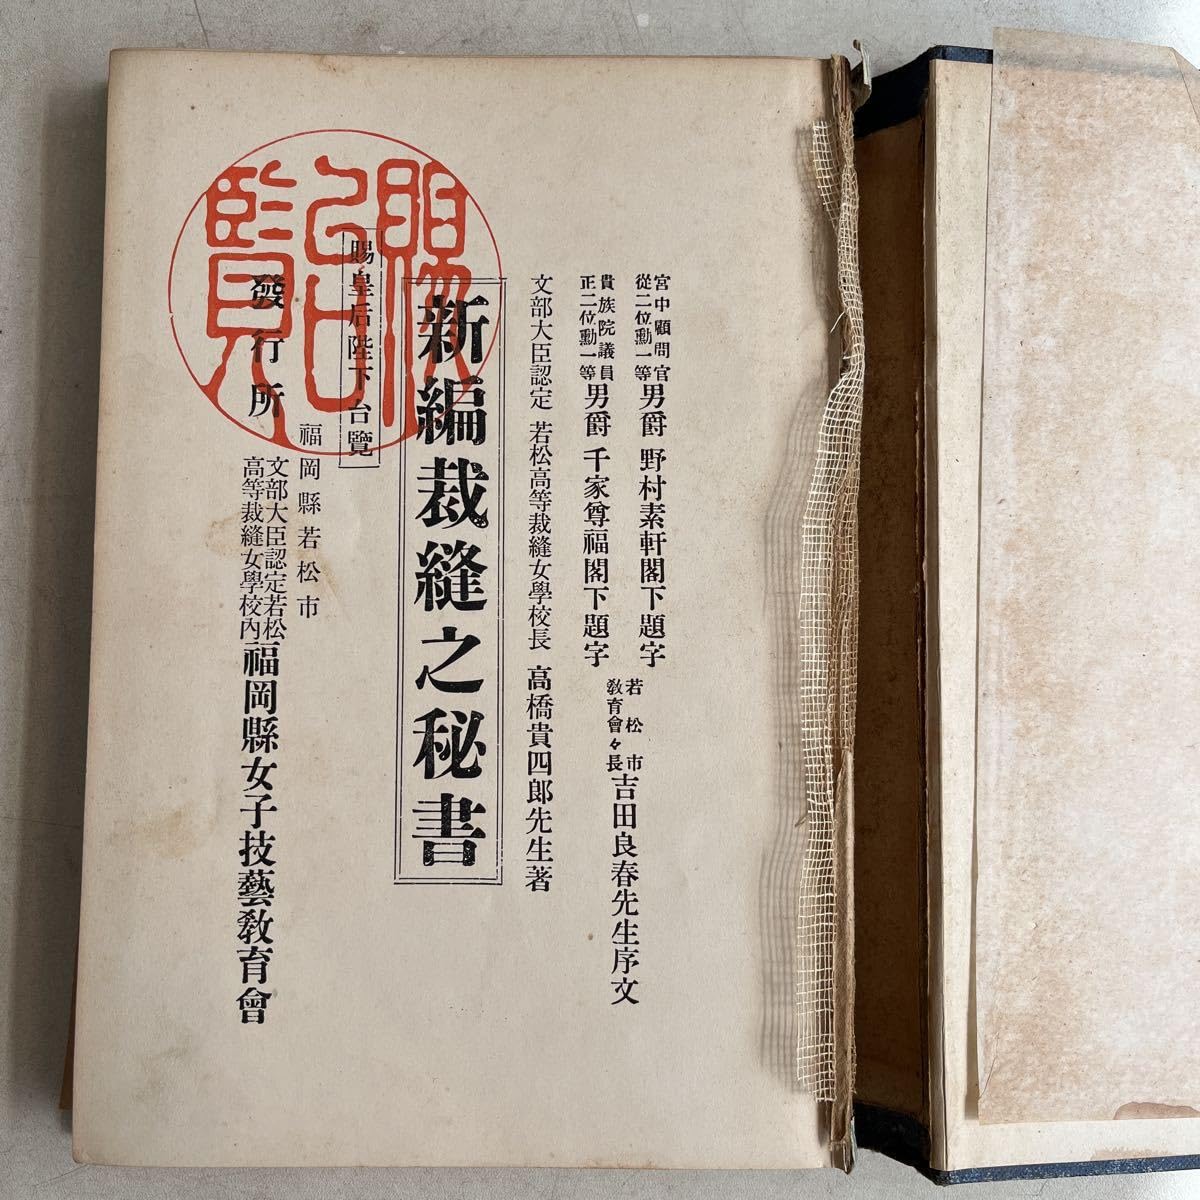 宮中顧問官
從二位勳一等
男爵 野村素軒閣下題字
貴族院議員
正二位勳一等
男爵 千家尊福閣下題字
若松市
教育會々長
吉田良春先生序文
文部大臣認定 若松高等裁縫女學校長 高橋貴四郎先生著
新編裁縫之秘書
賜皇后陛下台覽
賜台覽
發行所
福岡縣若松市
文部大臣認定若松
高等裁縫女學校內
福岡縣女子技藝教育會